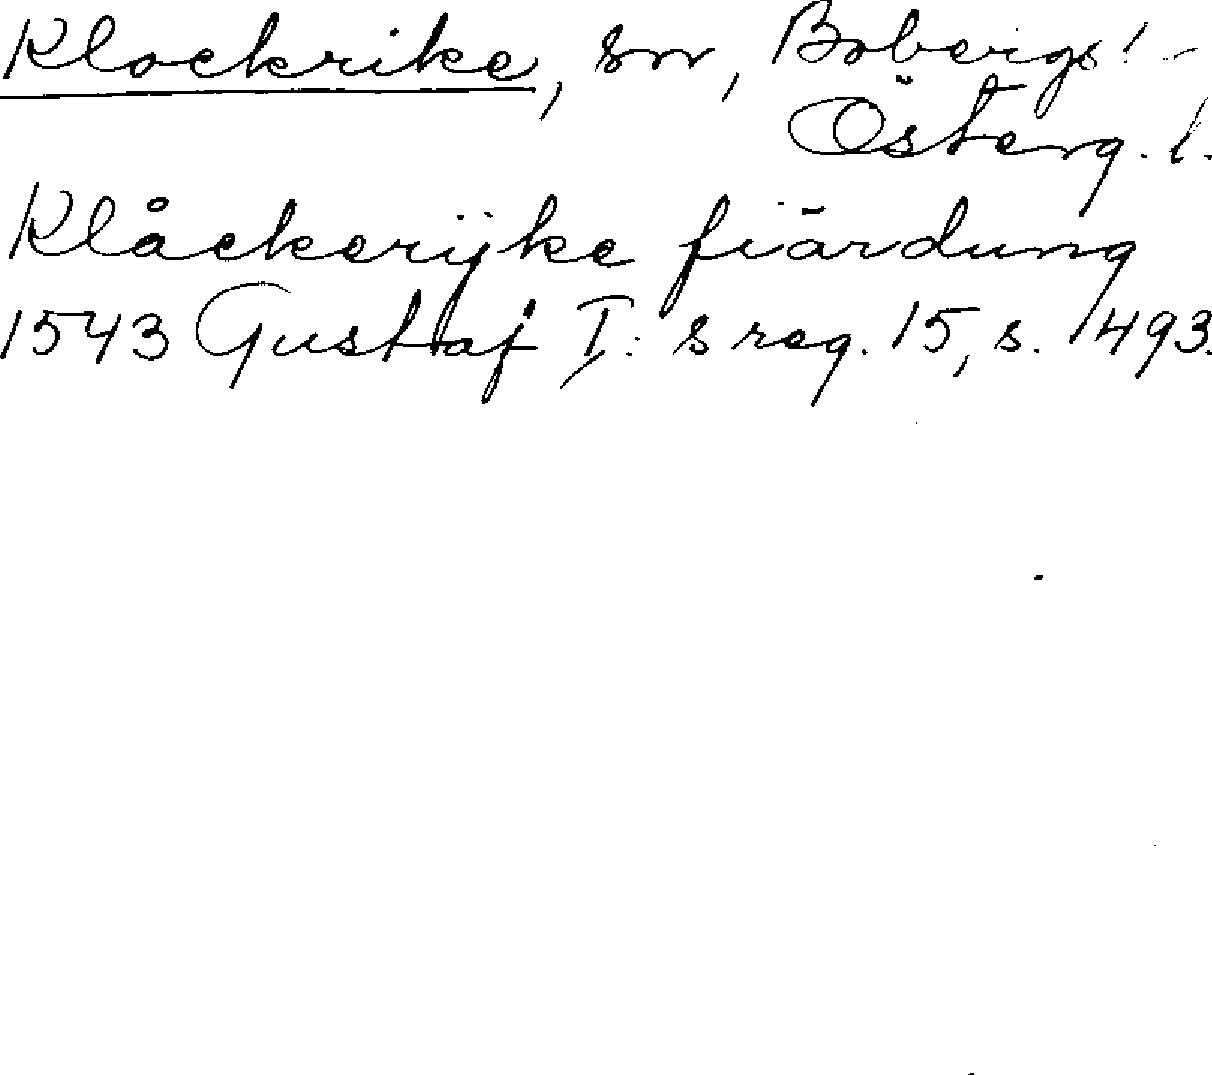 Klockrike, sn, Bobergs
Österg. l.
Klåckerijke fiärdung
1543 Gustaf I:s reg. 15, s. 493.